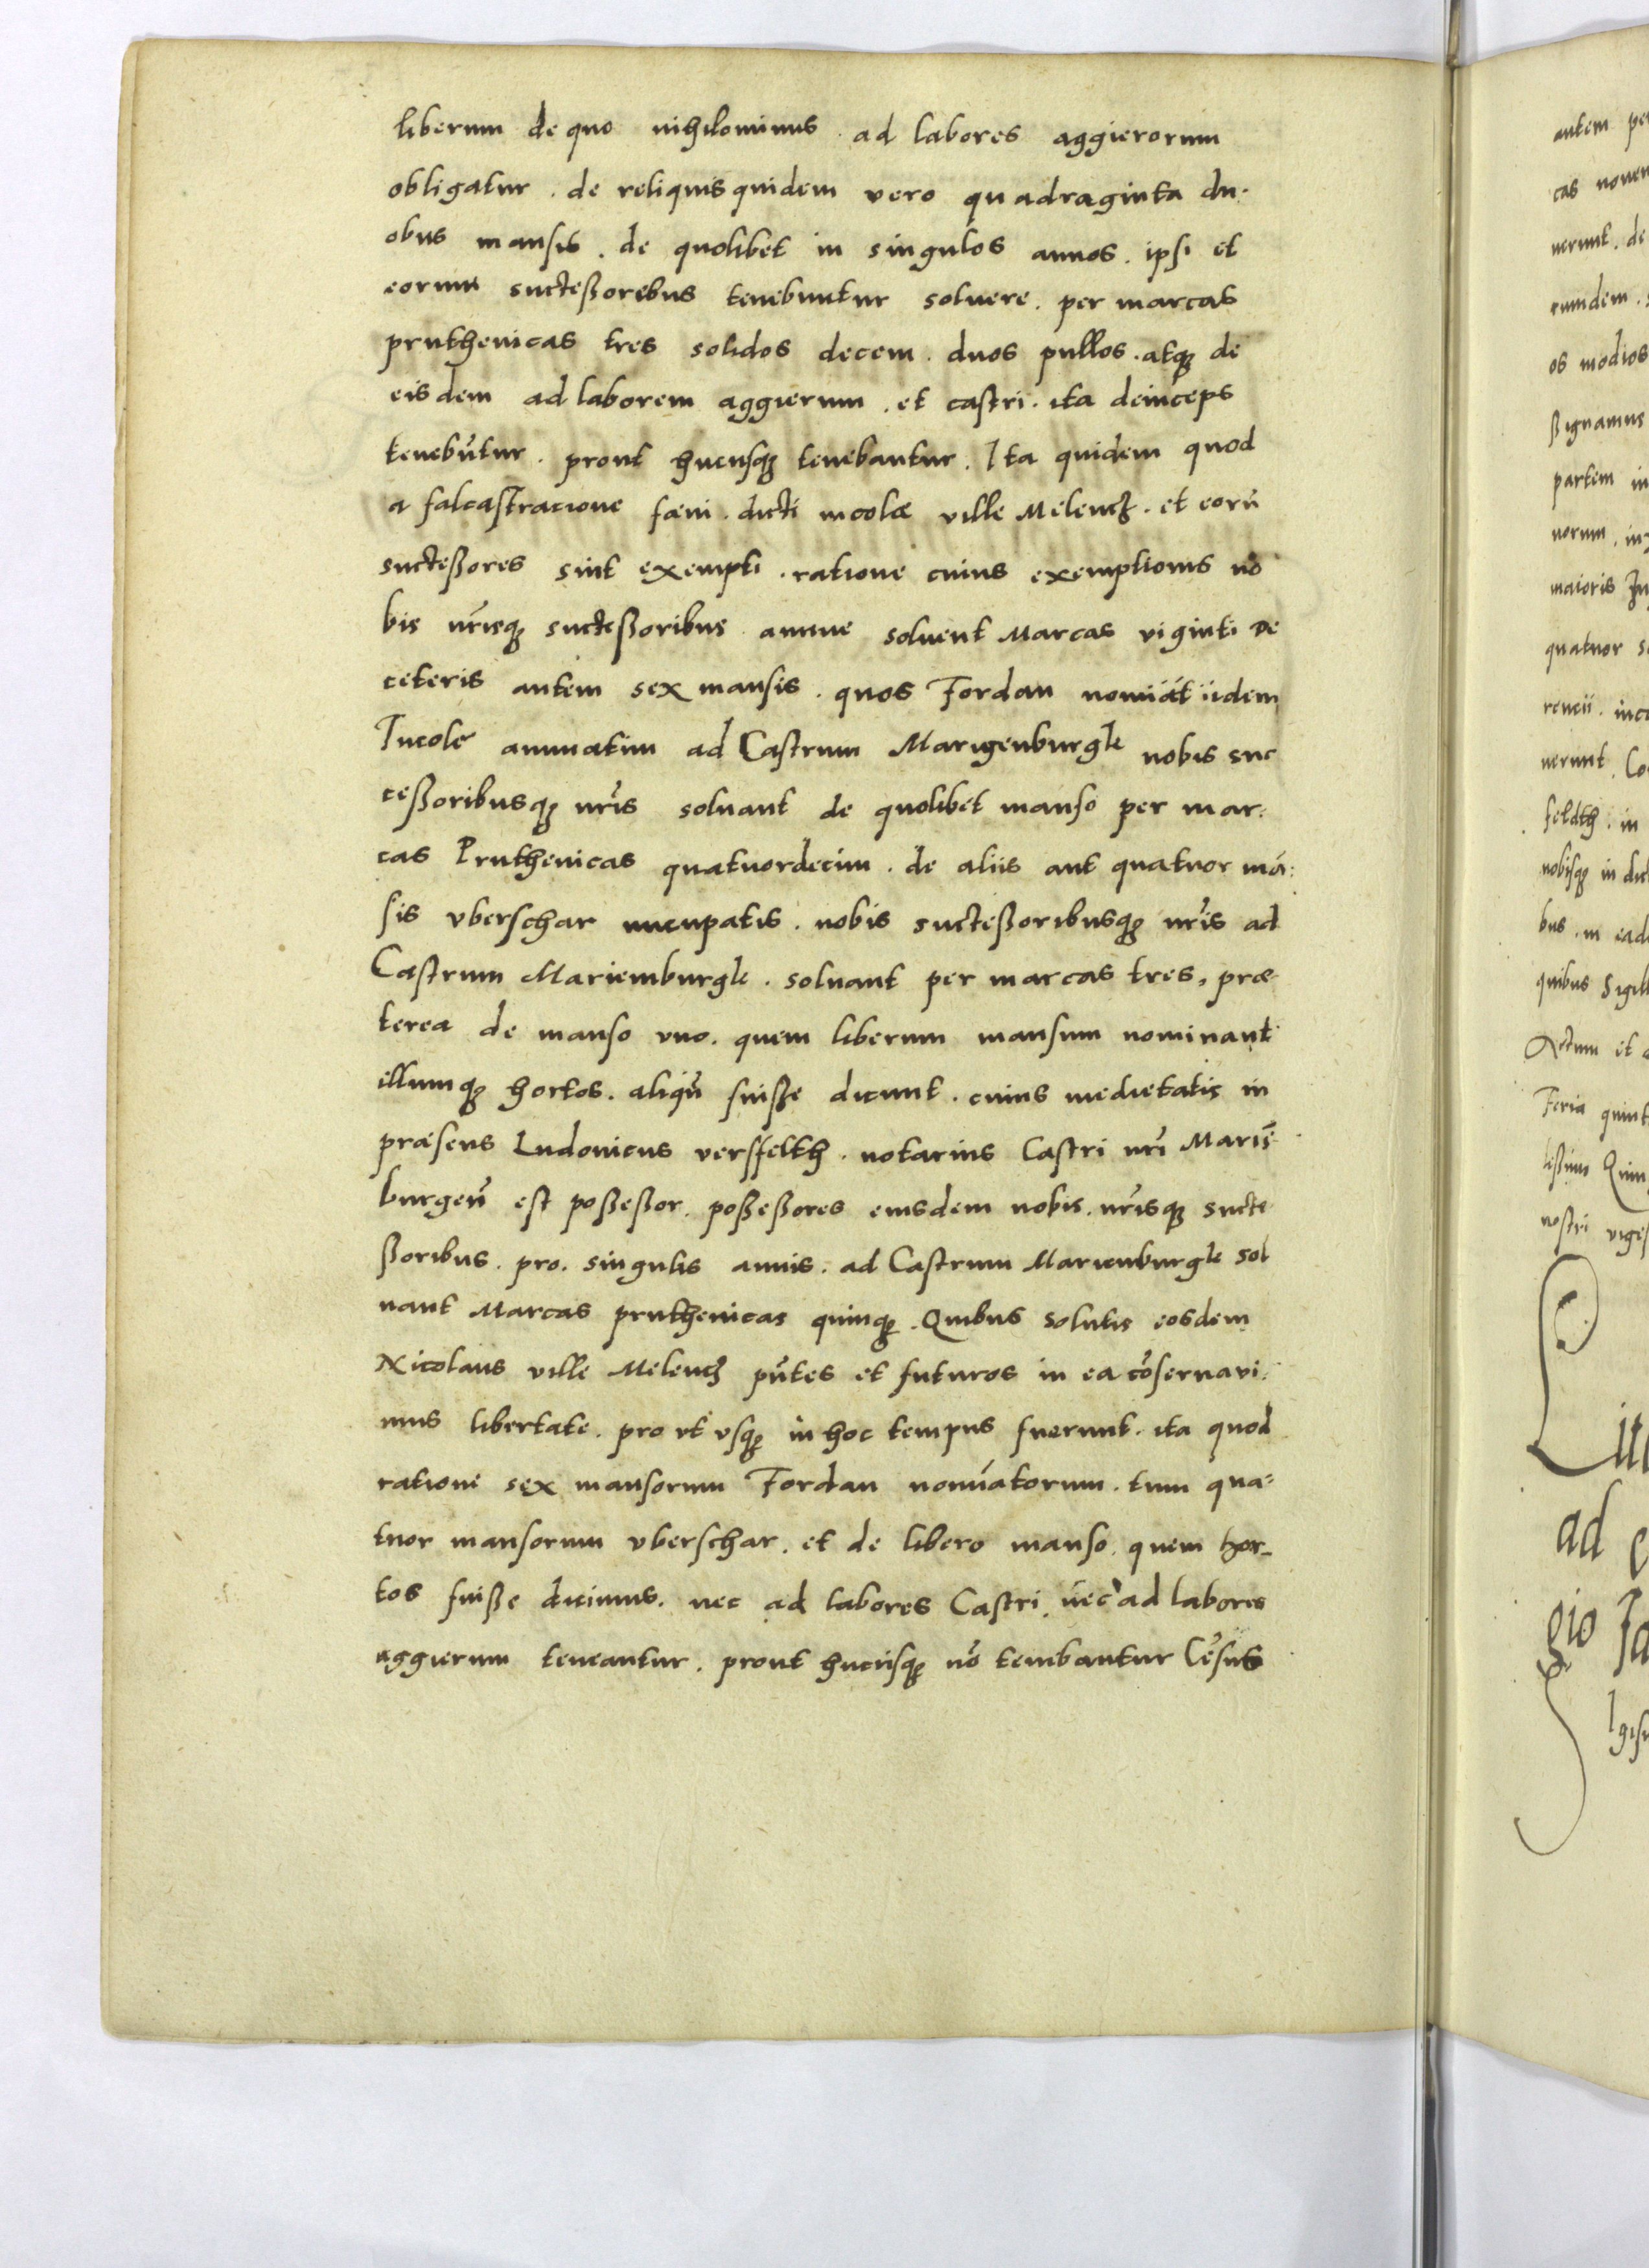 liberum de quo nihilominus . ad labores aggierorum
obligatur . de reliquis quidem vero quadraginta du-
obus mansis . de quolibet in singulos annos . ipsi et
eorum suctessorebus tenebuntur soluere . per marcas
pruthenicas tres solidos decem . duos pullos . atq de
eisdem ad laborem aggierum . et castri . ita deinceps
tenebūtur . prout hucusq tenebantur . Ita quidem quod
a falcastracione fæni . dicti incolæ ville Melencz . et eorū
suctessores sint exempti . ratione cuius exemptionis no
bis nr̄isq suctessoribus annue soluent Marcas viginti De
ceteris autem sex mansis . quos Fordan nomīāt iidem
Incole annuatim ad Castrum Marigenburgk nobis suc
cessoribusq nr̄is soluant de quolibet manso per mar:
cas Pruthenicas quatuordecim . de aliis aut quatuor mā:
sis vberschar nucupatis . nobis suctessoribusq nr̄is ad
Castrum Mariemburgk . soluant per marcas tres, præ
terea de manso vno . quem liberum mansum nominant
illumq hortos . aliqn̄ fuisse dicunt . cuius medietatis in
præsens Ludouicus versfelth . notarius Castri nr̄i Mariē
burgen̄ est possessor . possessores eiusdem nobis . nr̄isq sucte
ssoribus . pro . singulis annis . ad Castrum Marienburgk sol
uant Marcas pruthenicas quinq . Quibus solutis eosdem
Nicolaus ville Melencz pn̄tes et futuros in ea cōseruavi:
mus libertate . pro vt vsq in hoc tempus fuerunt . ita quod
ratione sex mansorum Fordan nomīatorum . tum qua=
tuor mansorum vberschar . et de libero manso . quem hor-
tos fuisse dicimus . nec ad labores Castri . nec ad labores
aggierum teneantur . prout hucusq nō tenebantur Cēsus
autem
cas
uerunt . de
eundem
os modios
ssignamus
partem in
uorum
maioris
quatuor
rencii
uerunt
feldth . in
nobisq in
bus . in
quibus
Actum et
Feria
nostri
ad
gio